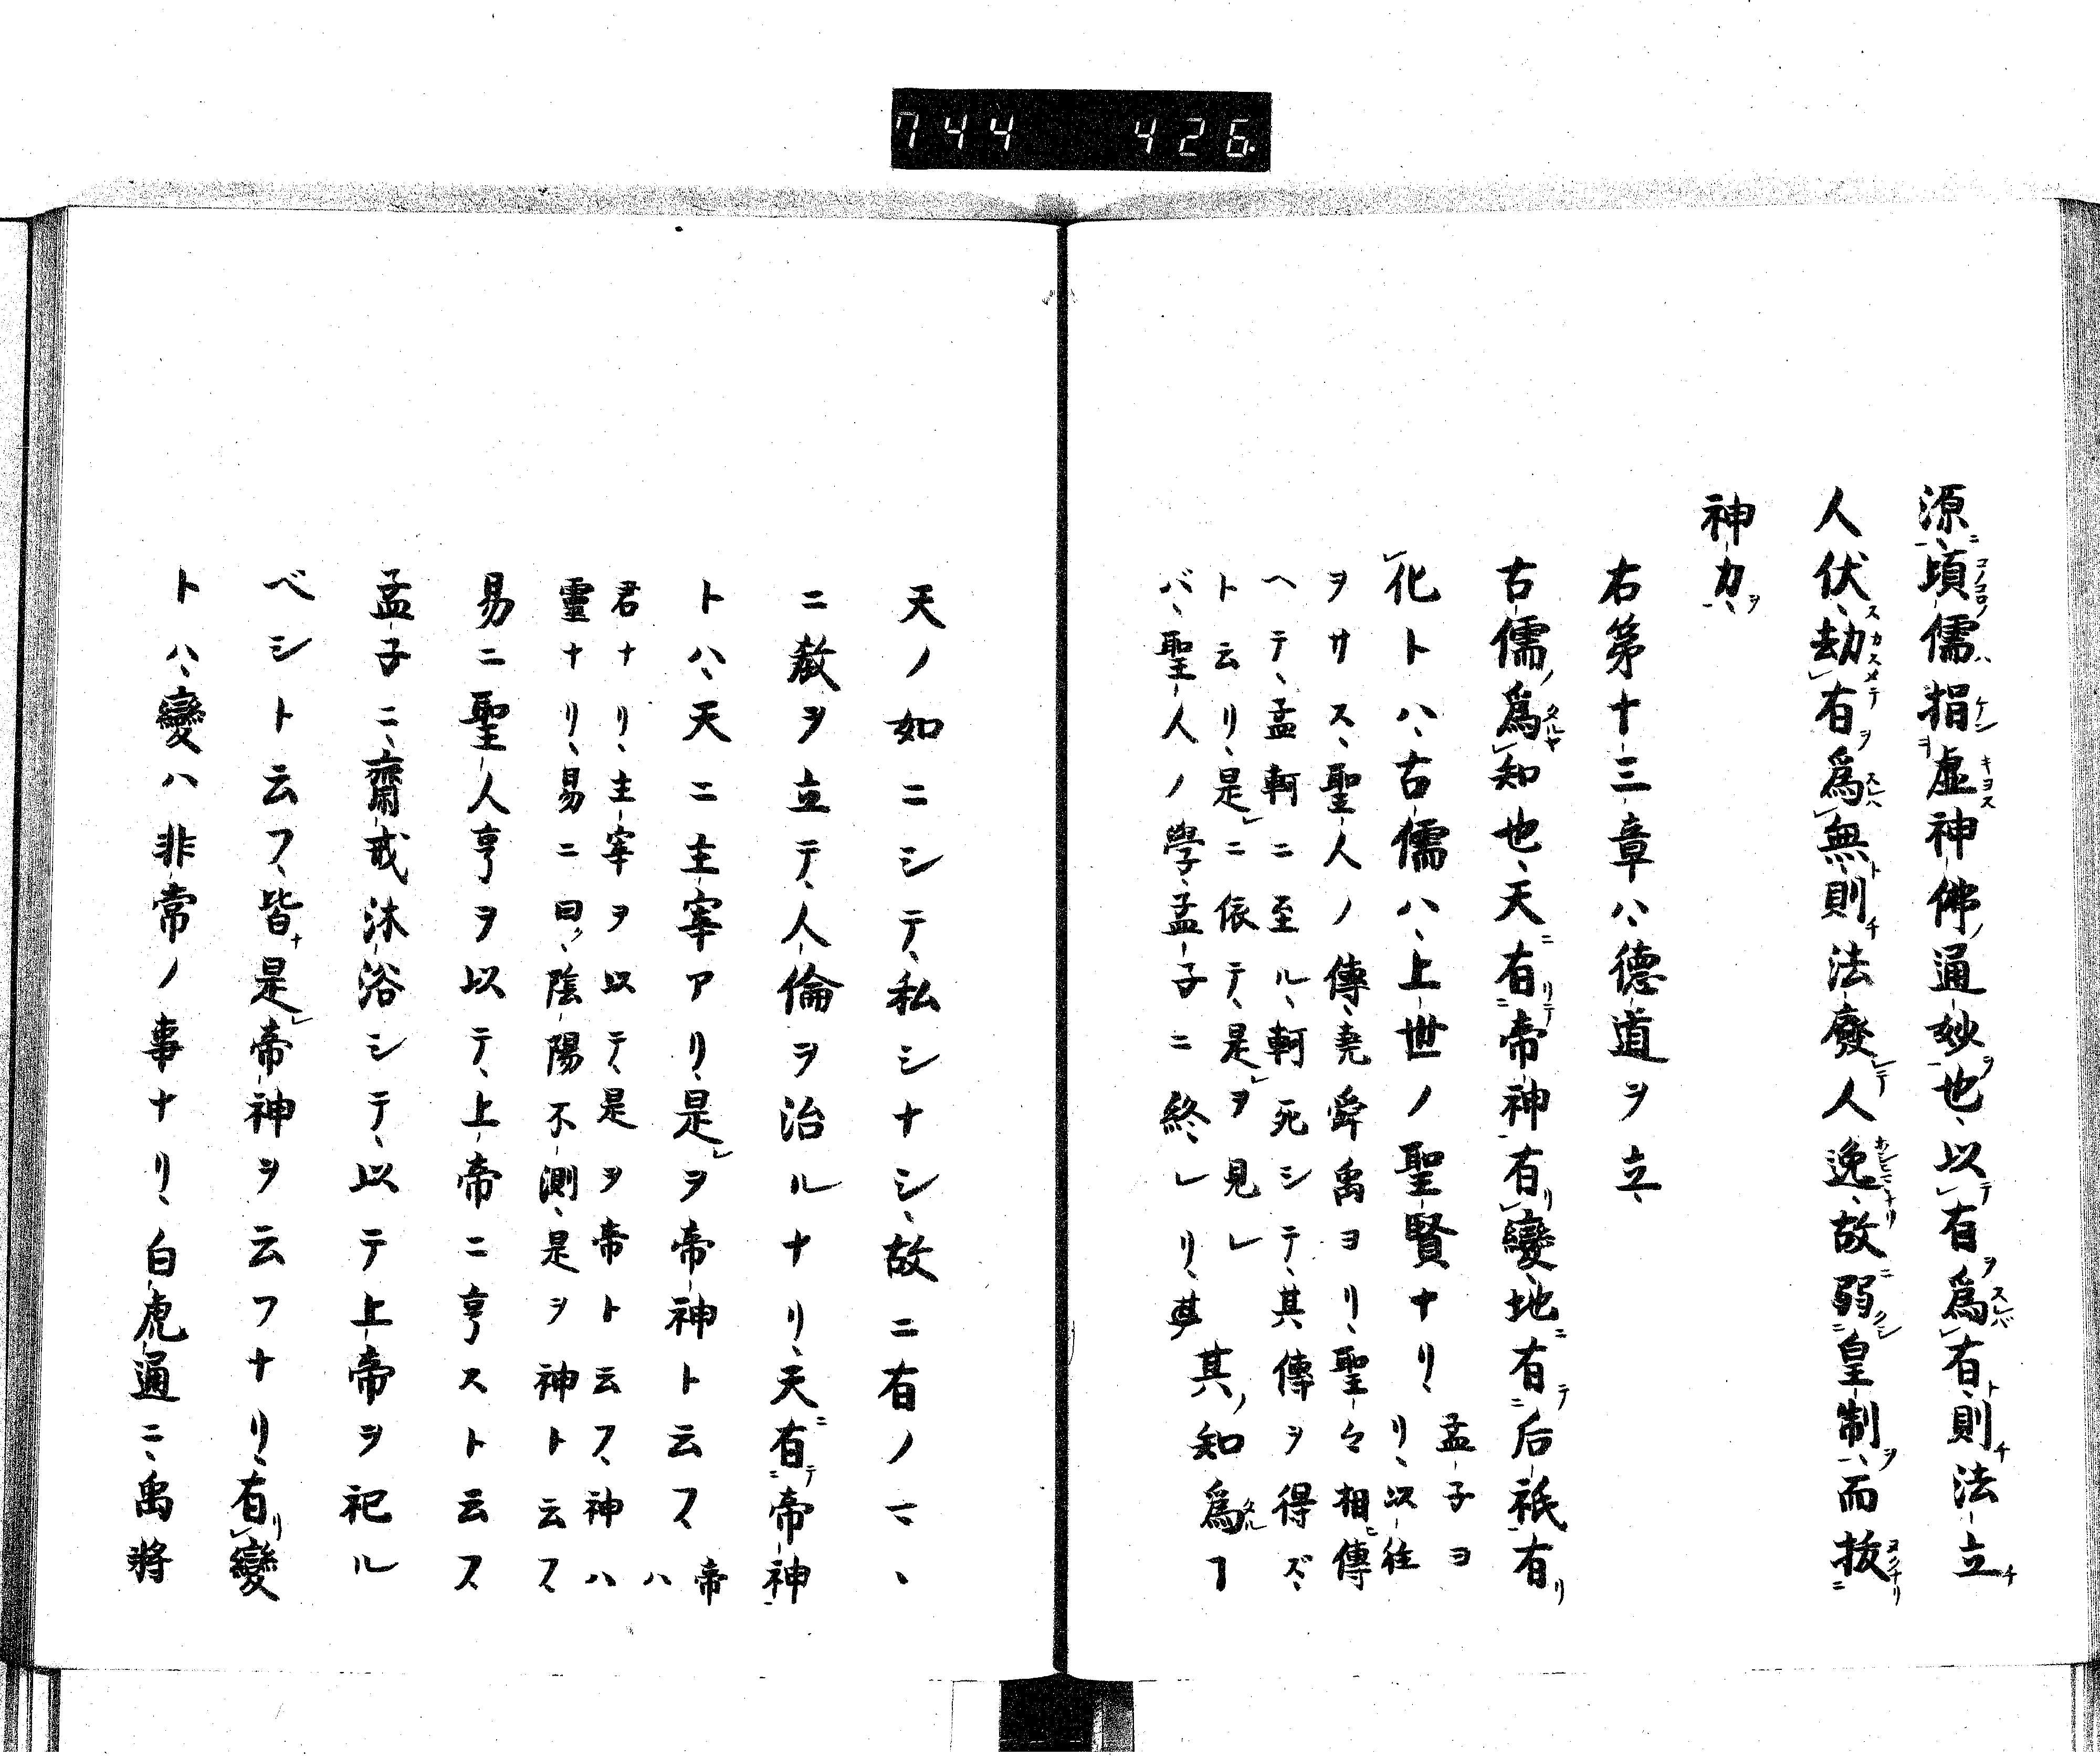 744 426.
源、頃儒捐虛神佛通妙也、以有爲有、則法立
人伏、劫有爲無、則法廢人逸、故弱皇制、而拔
神力、
右第十三章ハ、德道ヲ立、
古儒爲知也、天有帝神有變、地有后祇有
化トハ、古儒ハ、上世ノ聖賢ナリ、孟子ヨリ、以往
ヲサス、聖人ノ傳、堯舜禹ヨリ、聖々相傳
ヘテ、孟軻ニ至ル、軻死シテ、其傳ヲ得ズ、
ト云リ、是ニ依テ、是ヲ見レ
バ、聖人ノ學、孟子ニ終レリ、
其知爲ヿ
天ノ如ニシテ、私シナシ、故ニ有ノマヽ
ニ敎ヲ立テ、人倫ヲ治ルナリ、天有帝神
トハ、天ニ主宰アリ、是ヲ帝神ト云フ、帝ハ
君ナリ、主宰ヲ以テ、是ヲ帝ト云フ、神ハ
靈ナリ、易ニ曰、陰陽不測、是ヲ神ト云フ、
易ニ聖人亨ヲ以テ、上帝ニ亨スト云フ、
孟子ニ、齋戒沐浴シテ、以テ上帝ヲ祀ル
ベシト云フ、皆是帝神ヲ云フナリ、有變
トハ、變ハ非常ノ事ナリ、白虎通ニ、禹將